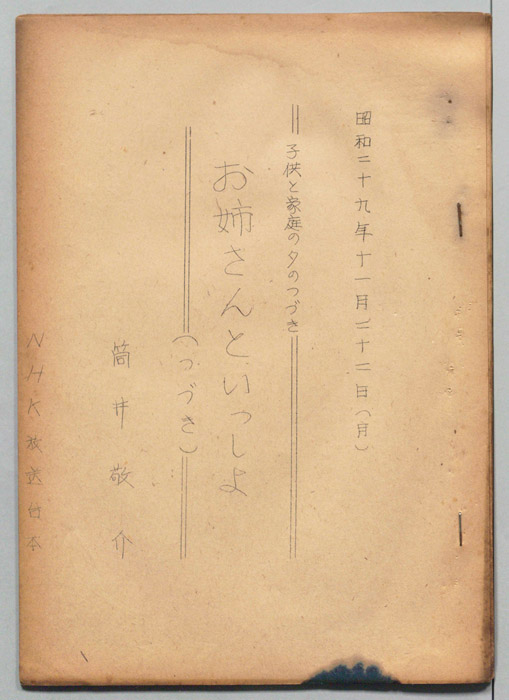 昭和二十九年十一月二十二日(月)
子供と家庭の夕のつづき
お姉さんといっしよ
(つづき)
筒井敬介
NHK放送台本